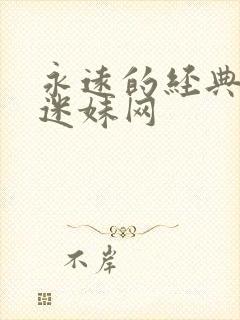 永遠的经典
迷妹网
不岸